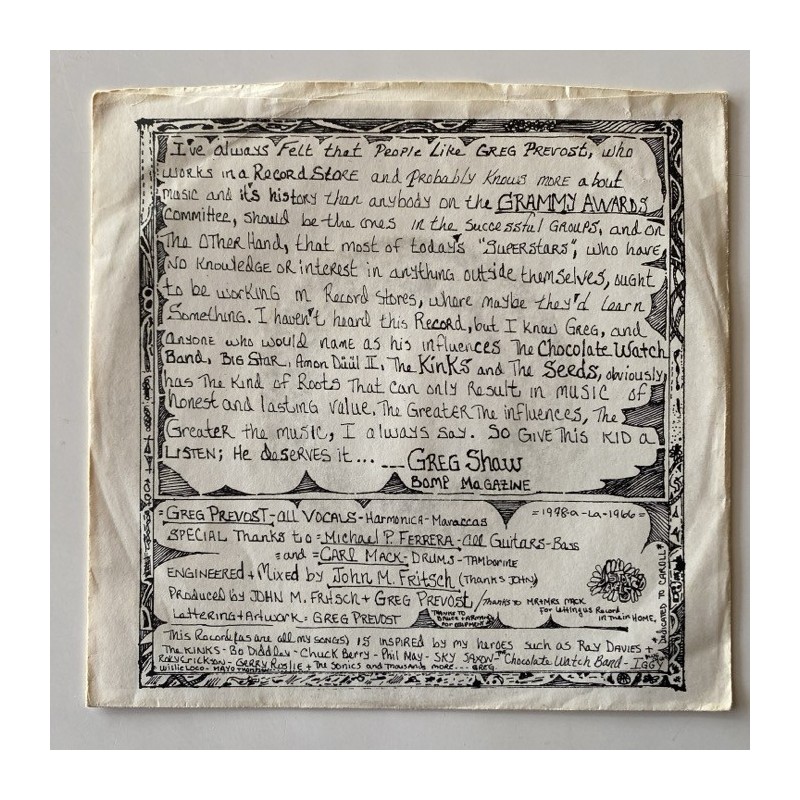 I've always felt that People Like GREG PREVOST, who
works in a RECORD STORE and probably knows more about
music and it's history than anybody on the GRAMMY AWARDS
committee, should be the ones in the successful GROUPS, and on
The OTHER Hand, that most of today's "SUPERSTARS", who have
NO Knowledge OR interest in anything outside themselves, ought
to be working in Record Stores, where maybe they'd learn
Something. I haven't heard this Record, but I know Greg, and
anyone who would name as his influences The Chocolate Watch
Band, BIG STAR, Amon Düül II, The Kinks and The SEEDS, obviously
has The Kind of Roots That can only Result in MUSIC of
honest and lasting value. The Greater The influences, The
Greater the music, I always say. SO GIVE This KID a
LISTEN; He deserves it... ---GREG Shaw
BOMP MAGAZINE
=GREG PREVOST-all VOCALS-Harmonica-Maraccas =1978-a-La-1966=
SPECIAL Thanks to =Michael P. FERRERA-all Guitars-Bass
=and =CARL MACK-DRUMS-TAMBORINE
ENGINEERED + Mixed by John M. Fritsch (Thanks JOHN)
Produced by JOHN M. FRitsch + GREG PREVOST / Thanks to MR+MRS MACK
For letting us Record
in Their HOME,
Lettering + Artwork = GREG PREVOST
THANKS TO
BRUCE + ARMAND
FOR EQUIPMENT
DEDICATED TO CAROLLE
This Record (as are all my songs) IS inspired by my heroes such as Ray Davies +
The KINKS - Bo Diddley - Chuck Berry - Phil May - SKY SAXON - The Chocolate Watch Band - IGGY
Roky Erickson - GERRY Roslie + The Sonics and Thousands more... GREG
Willie Loco - MAYO Thompson